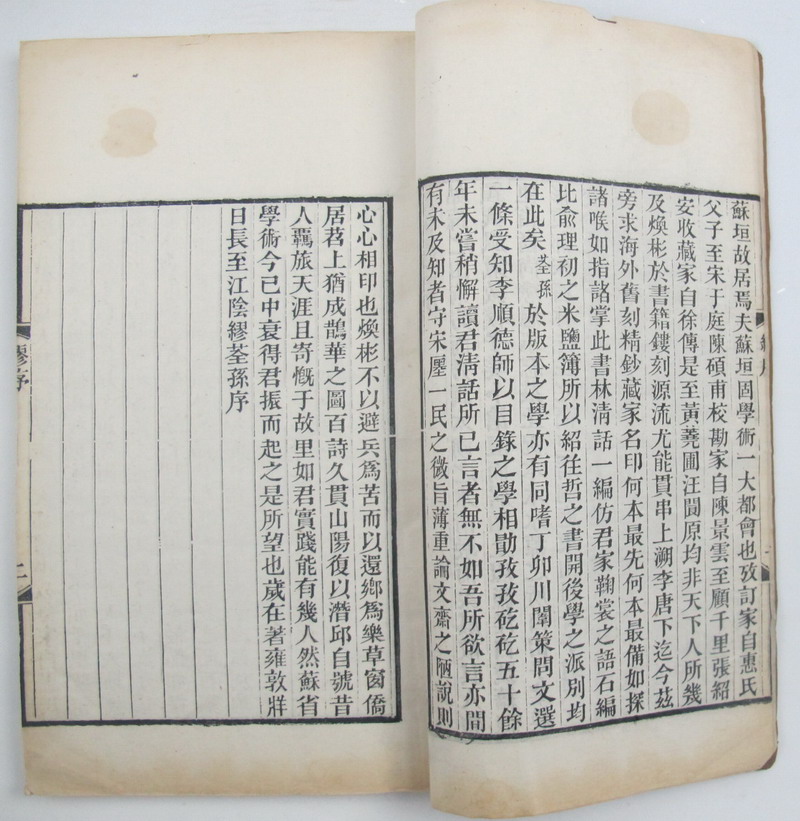 蘇垣故居焉夫蘇垣固學術一大都會也攷訂家自惠氏
父子至宋于庭陳碩甫校勘家自陳景雲至顧千里張紹
安收藏家自徐傳是至黃蕘圃汪閬原均非天下人所幾
及煥彬於書籍鏤刻源流尤能貫串上溯李唐下迄今茲
旁求海外舊刻精鈔藏家名印何本最先何本最備如探
諸喉如指諸掌此書林清話一編仿君家鞠裳之語石編
比俞理初之米鹽簿所以紹往哲之書開後學之派別均
在此矣荃孫於版本之學亦有同嗜丁卯川闈策問文選
一條受知李順德師以目錄之學相勖孜孜矻矻五十餘
年未嘗稍懈讀君清話所已言者無不如吾所欲言亦間
有未及知者守宋廛一民之微旨薄重論文齋之陋說則
心心相印也煥彬不以避兵爲苦而以還鄉爲樂草窗僑
居苕上猶成鵲華之圖百詩久貫山陽復以潛邱自號昔
人羈旅天涯且寄慨于故里如君實踐能有幾人然蘇省
學術今已中衰得君振而起之是所望也歲在著雍敦牂
日長至江陰繆荃孫序
繆序
二